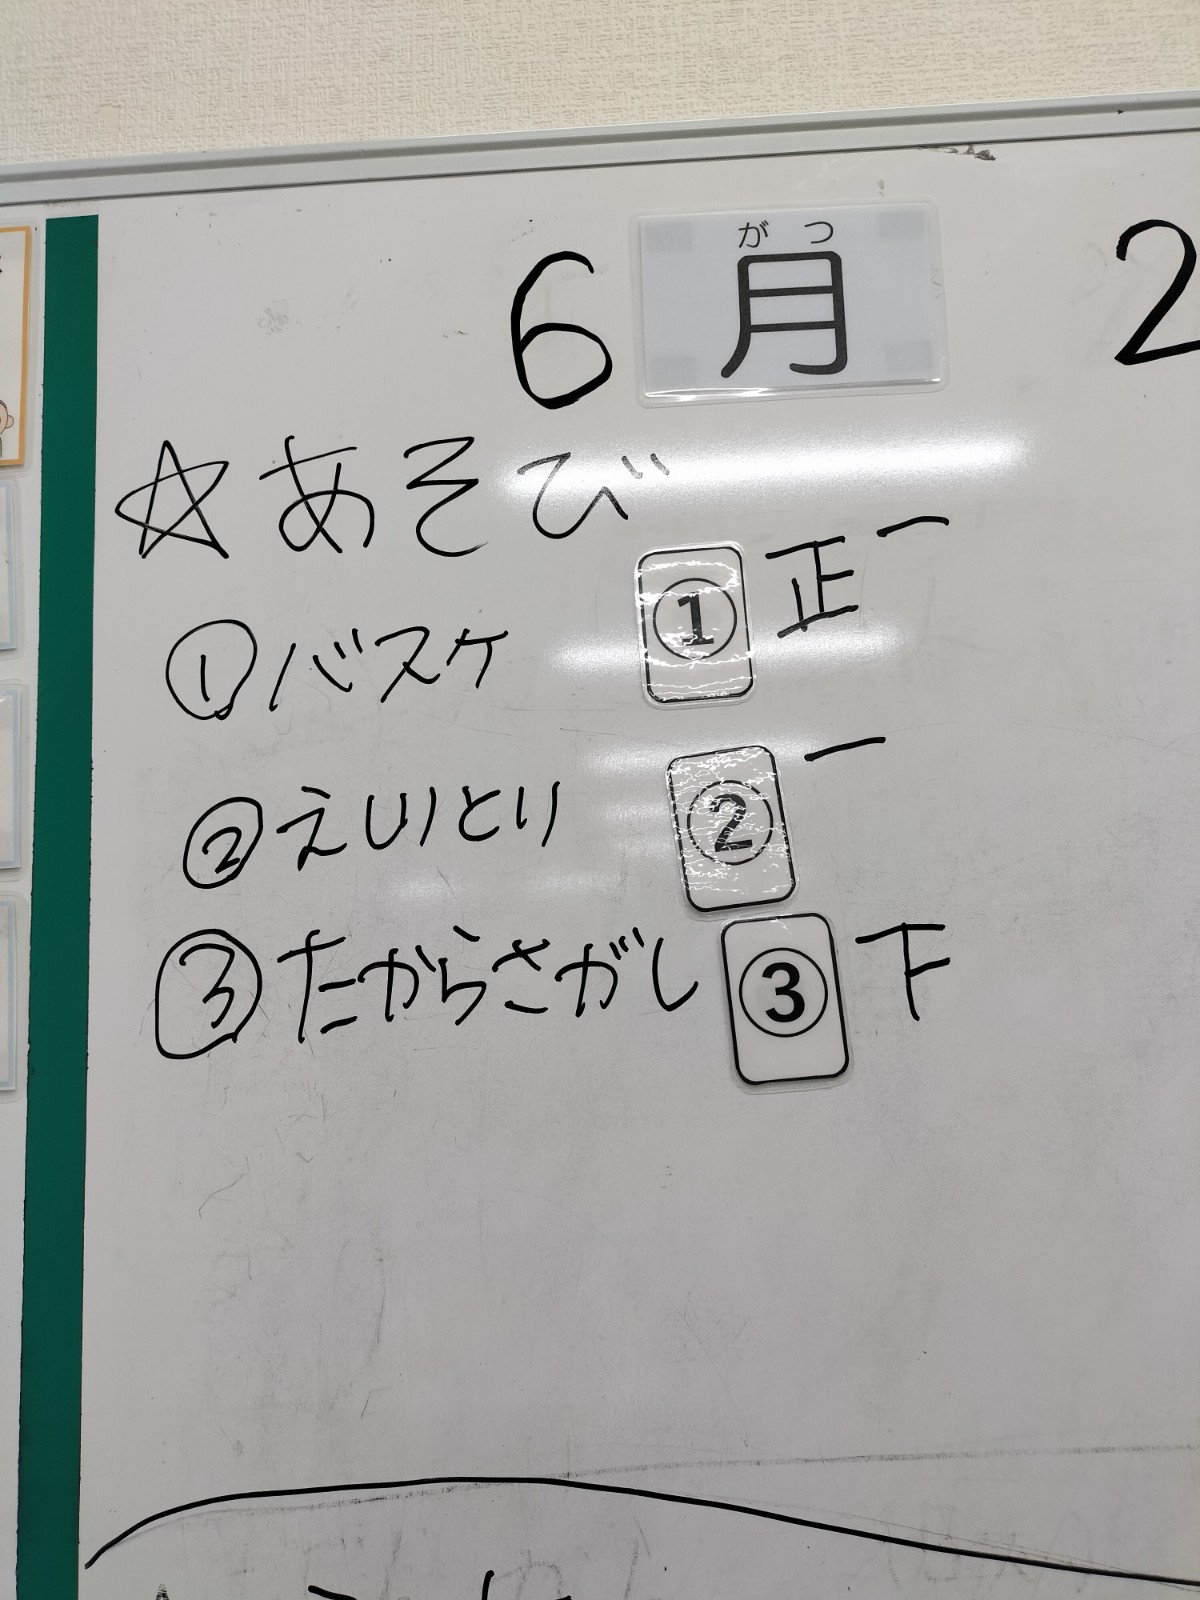 がつ
6月 2
☆あそび
①バスケ ① 正一
②えいりとり ② 一
③たからさがし ③ 下